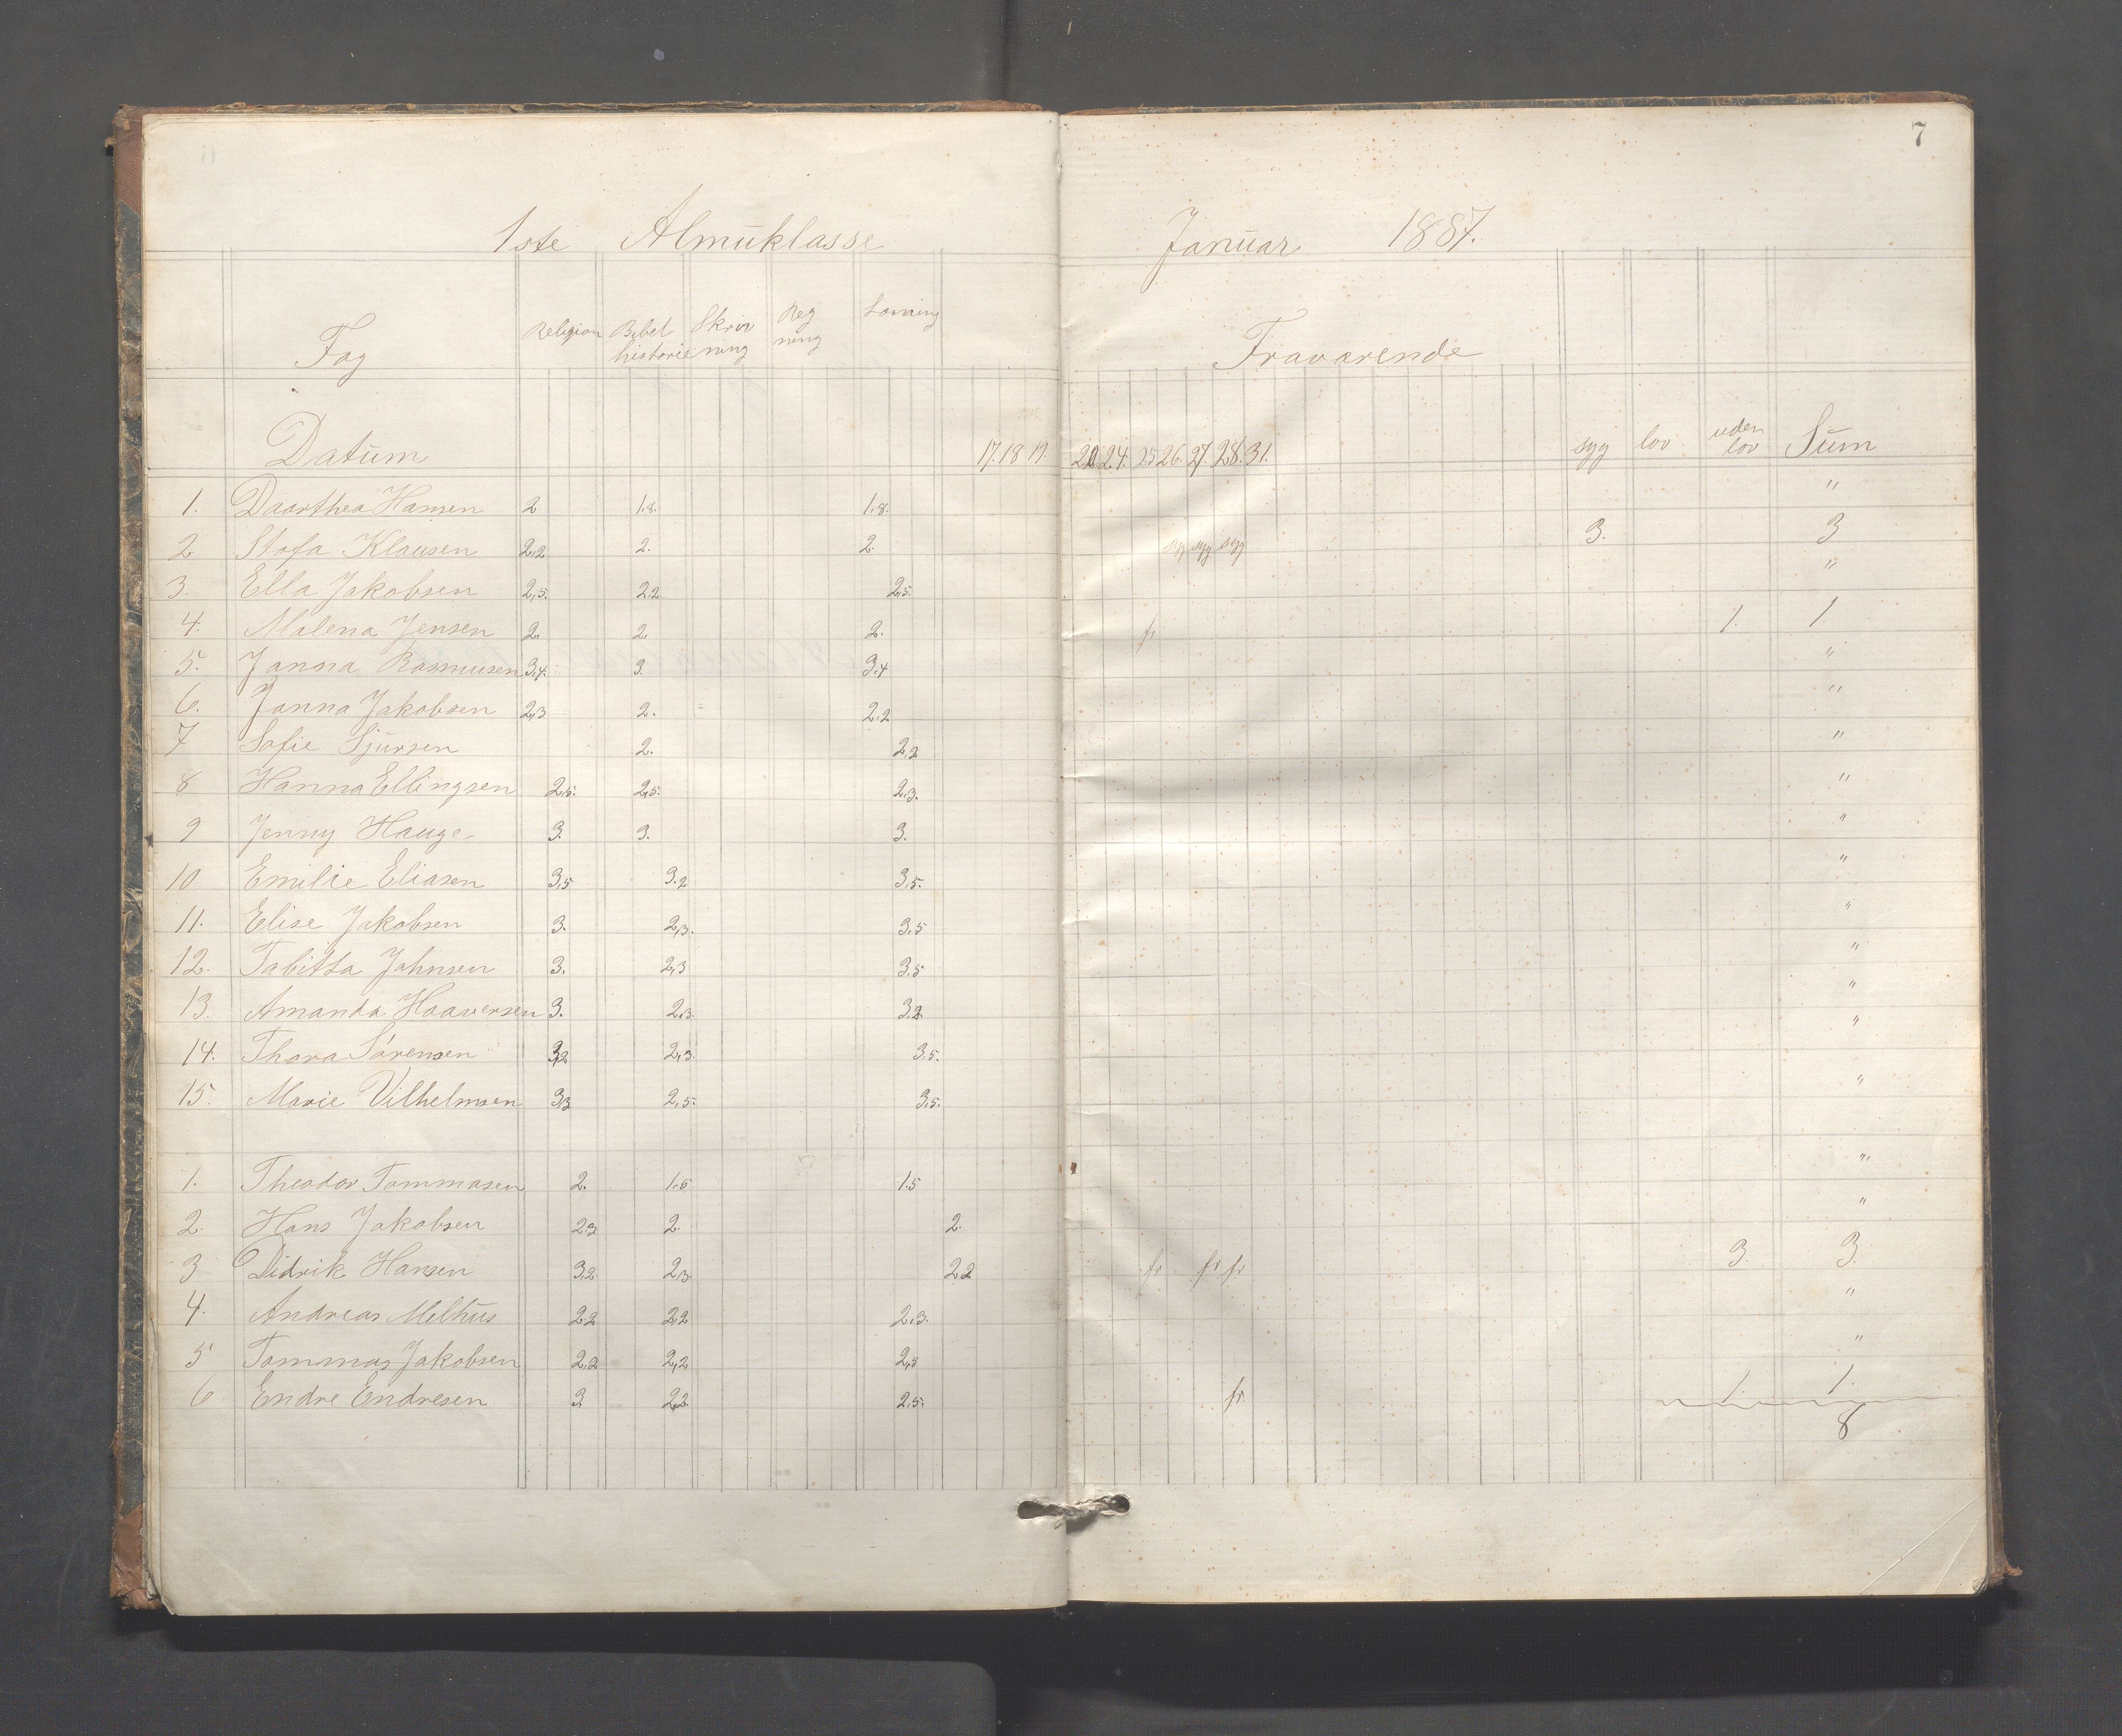 7
1ste Almuklasse Januar 1887.
Fag Religion Bibel historie Skriv ning Reg ning Læsning Fraværende
Datum 17. 18 19. 24. 25 26. 27. 28. 31. syg lov uden lov Sum
1. Daorthea Hansen 2 1.8. 1.8. "
2 Stofa Klausen 2,2 2. 2. syg syg syg 3. 3
3. Ella Jakobsen 2,5. 2.2. 2,5. "
4. Malena Jensen 2. 2. 2. fr 1. 1
5. Janna Rasmusen 3,4. 3. 3,4 "
6. Janna Jakobsen 2,3 2. 2.2 "
7 Sofie Sjursen 2. 2,2 "
8 Hanna Ellingsen 2,5. 2,5. 2,3. "
9 Jenny Hauge 3. 3. 3. "
10 Emilie Eliasen 3,5 3.2 3,5. "
11. Elise Jakobsen 3. 2,3. 3.5 "
12. Tabitta Johnsen 3. 2,3 3.5 "
13. Amanda Haaversen 3. 2,3. 3.2. "
14. Thora Sørensen 3,2 2,3. 3.5. "
15. Marie Vilhelmsen 3,3 2,5. 3,5. "
1. Theodor Tommasen 2. 1.5 1.5 "
2. Hans Jakobsen 2.3 2. 2. "
3 Didrik Hansen 3.2 2,3. 2.2 fr fr fr 3. 3.
4. Andreas Melhus 2.2 2,2 2,3. "
5 Tommas Jakobsen 2.2 2,2 2,5 "
6 Endre Endresen 3. 2,2. 2.5. fr. 1. 1.
8